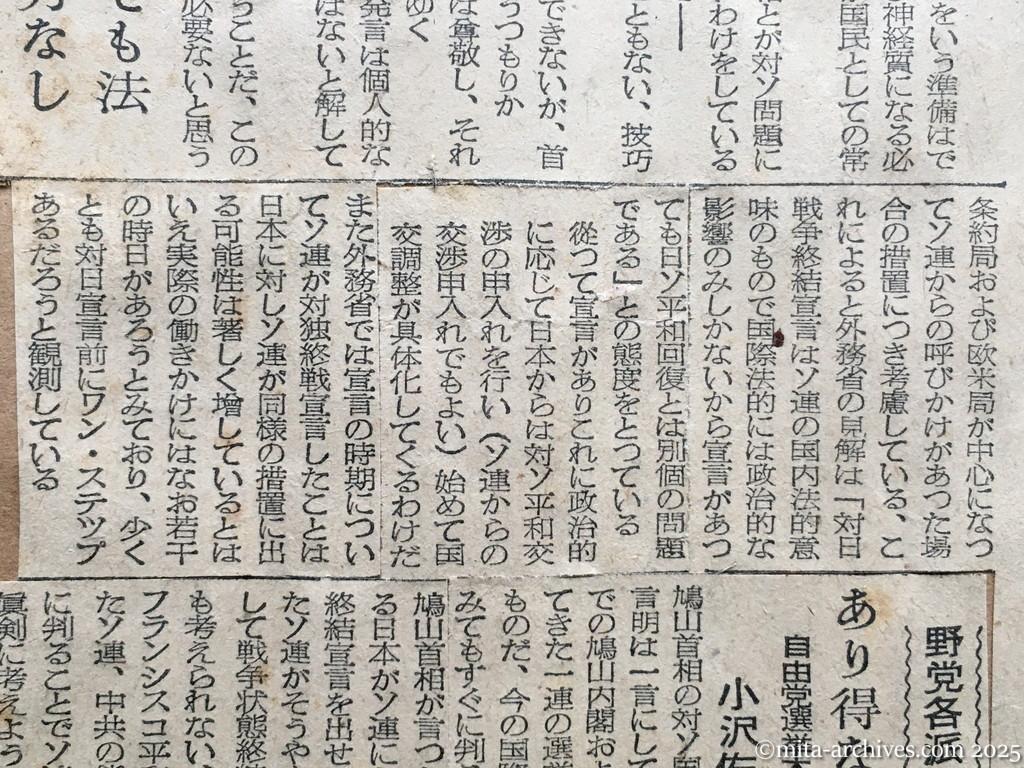 をいう準備はで
神経質になる必
が国民としての常
とが対ソ問題に
わけをしている
ともない、技巧
できないが、首
うつもりか
は尊敬し、それ
めく
発言は個人的な
はないと解して
うことだ、この
必要ないと思う
も法
なし
条約局および欧米局が中心になつ
てソ連からの呼びかけがあつた場
合の措置につき考慮している、こ
れによると外務省の見解は「対日
戦争終結宣言はソ連の国内法的意
味のもので国際法的には政治的な
影響のみしかないから宣言があつ
ても日ソ平和回復とは別個の問題
である」との態度をとつている
從つて宣言がありこれに政治的
に応じて日本からは対ソ平和交
渉の申入れを行い（ソ連からの
交渉申入れでもよい）始めて国
交調整が具体化してくるわけだ
また外務省では宣言の時期につい
てソ連が対独終戦宣言したことは
日本に対しソ連が同様の措置に出
る可能性は著しく増しているとは
いえ実際の働きかけにはなお若干
の時日があろうとみており、少く
とも対日宣言前にワン・ステップ
あるだろうと観測している
野党各派
あり得な
自由党選挙
小沢佐
鳩山首相の対ソ
言明は一言にして
での鳩山内閣お
てきた一連の選挙
ものだ、今の国際
みてもすぐに判
鳩山首相が言つ
る日本がソ連に
終結宣言を出せ
たソ連がそうや
して戦争状態終
も考えられない
フランシスコ平
たソ連、中共の
に判ることでソ
眞剣に考えよう
©mita-archives.com 2025